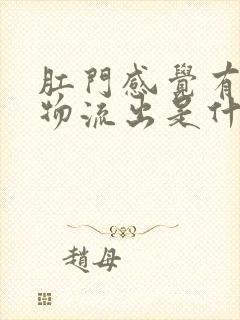 肛門感覺有
物流出是什
趙母